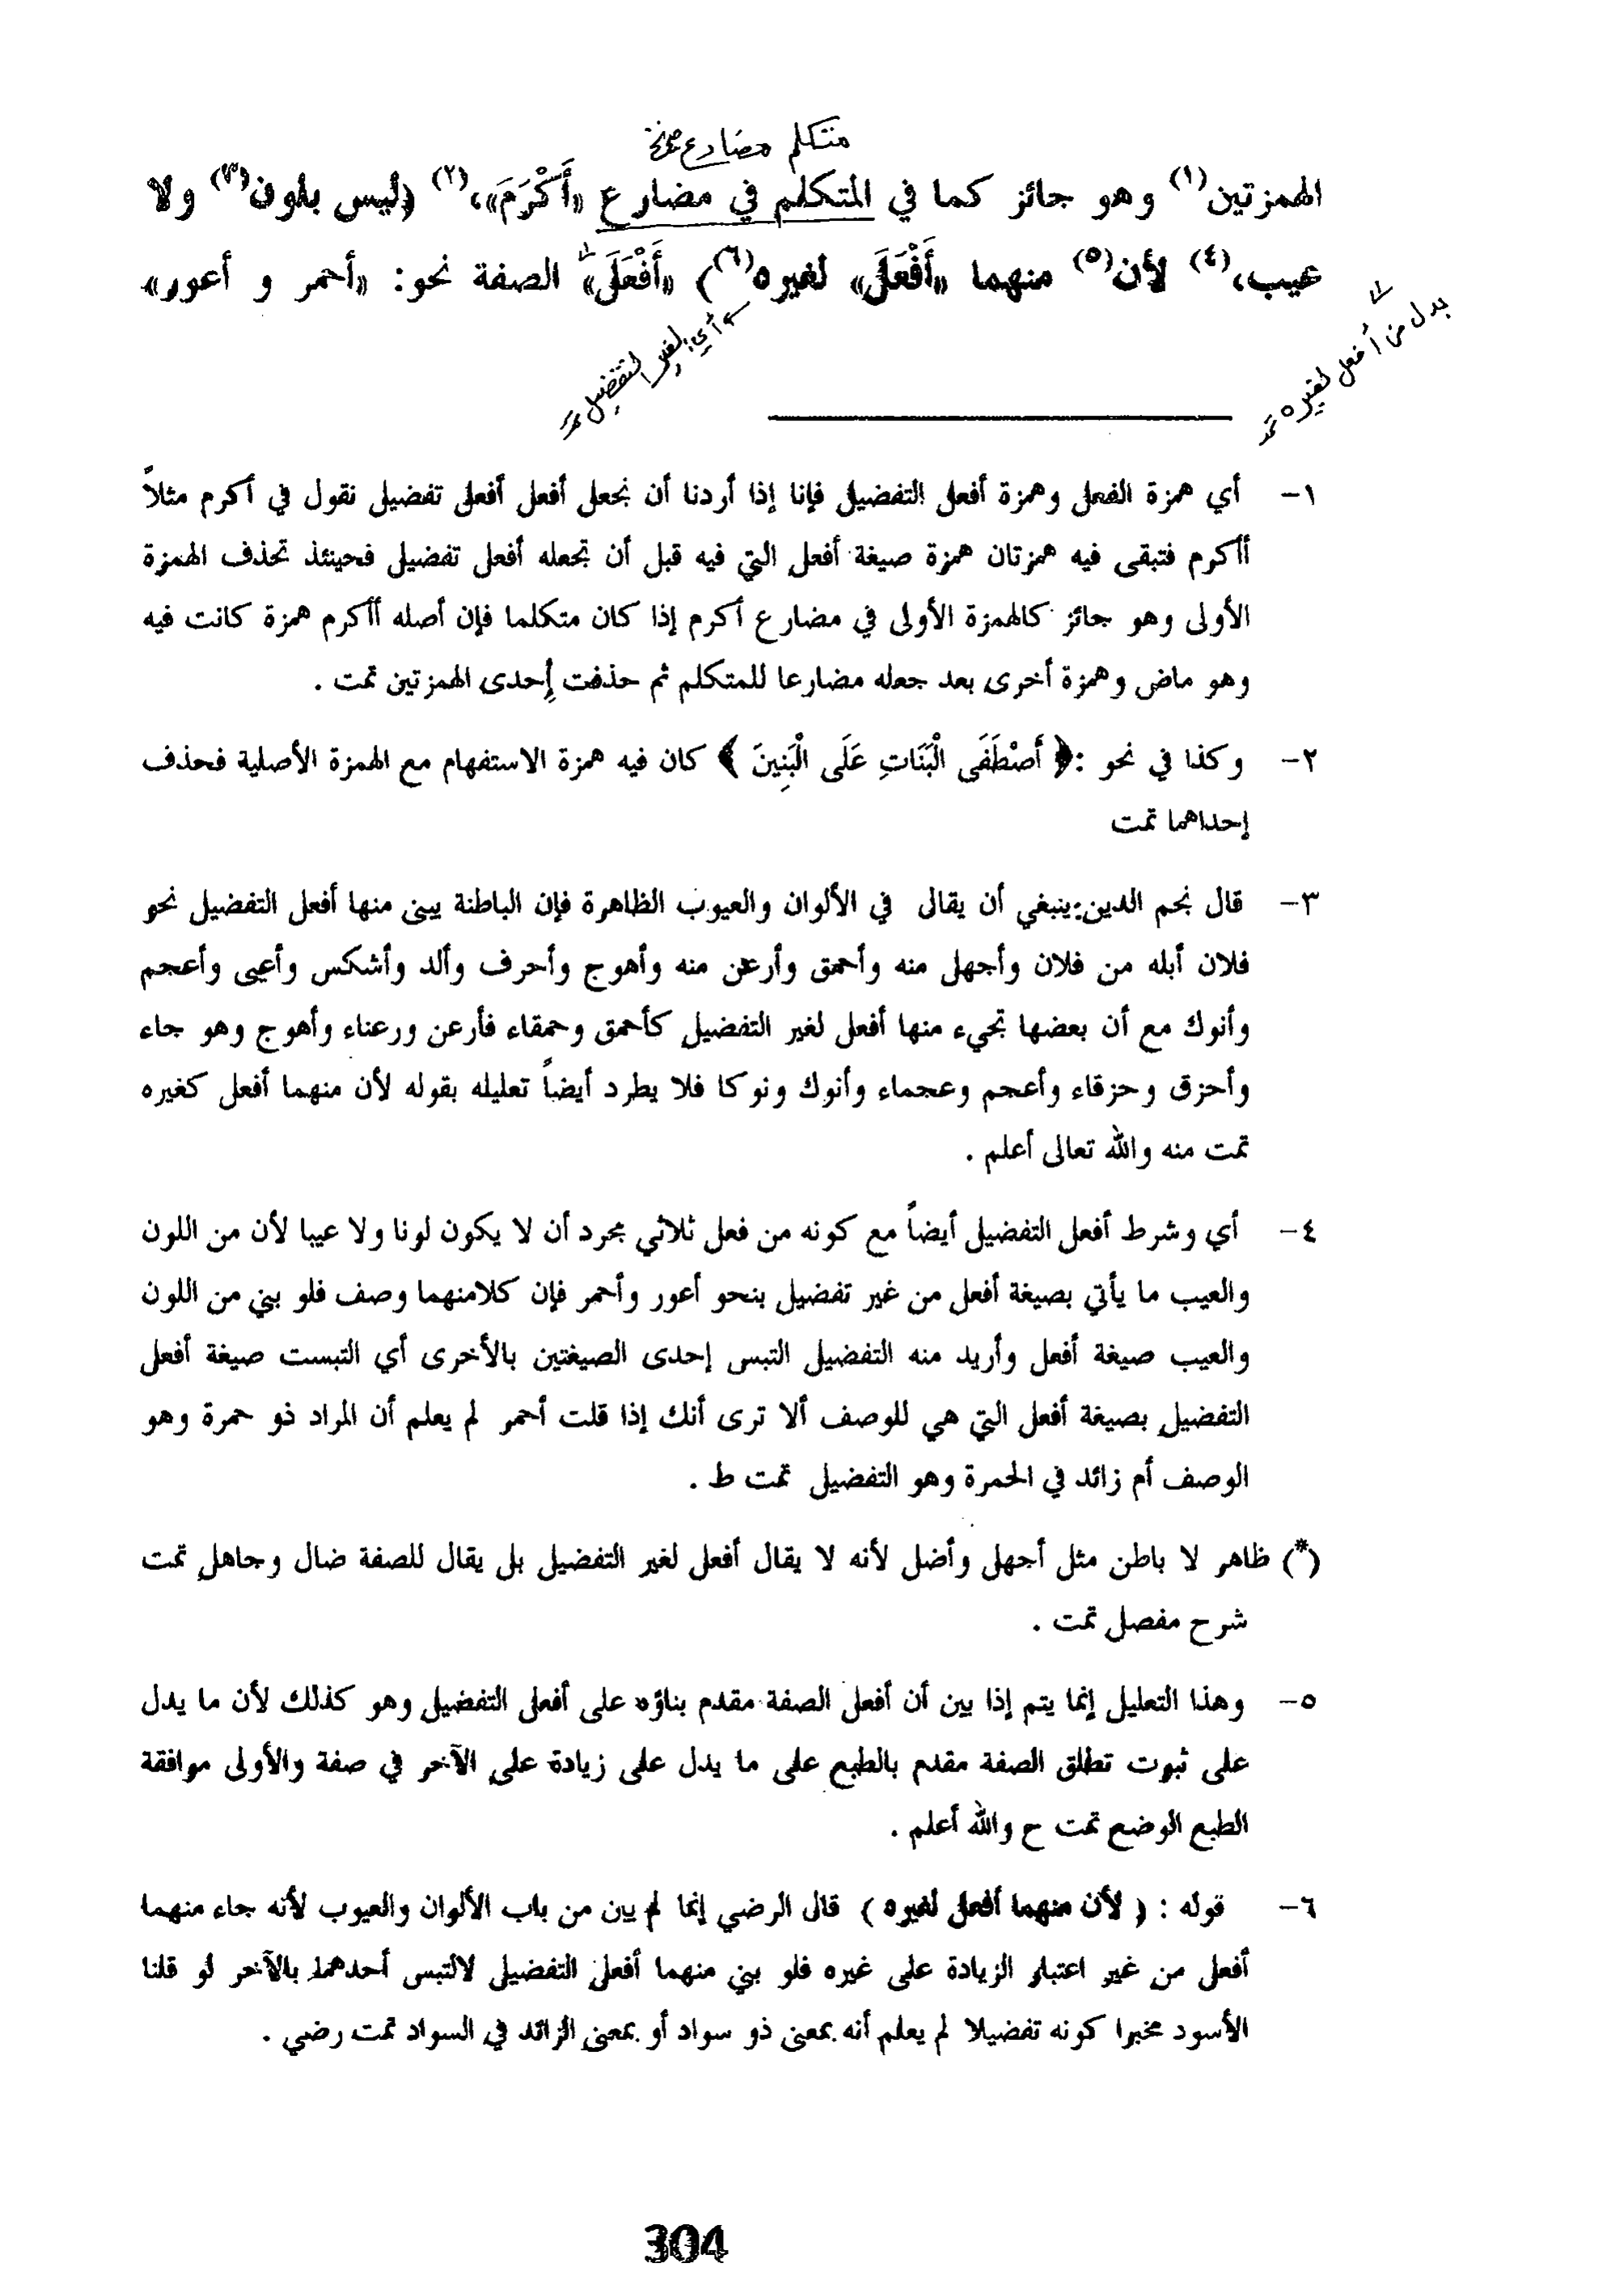 متكلم مضارع
الهمزتين(١) وهو جائز كما في المتكلم في مضارع «أَكْرَمَ»،(٢) (ليس بلون(٣) ولا
عيب،(٤) لأن(٥) منهما «أَفْعَلَ» لغيره(٦)) «أَفْعَلَ» الصفة نحو: «أحمر و أعور»
بدل من أفعل لغيره
أي: لغير التفضيل
١- أي همزة الفعل وهمزة أفعل التفضيل فإنا إذا أردنا أن نجعل أفعل أفعل تفضيل نقول في أكرم مثلاً
أأكرم فتبقى فيه همزتان همزة صيغة أفعل التي فيه قبل أن تجعله أفعل تفضيل فحينئذ تحذف الهمزة
الأولى وهو جائز كالهمزة الأولى في مضارع أكرم إذا كان متكلما فإن أصله أأكرم همزة كانت فيه
وهو ماض وهمزة أخرى بعد جعله مضارعا للمتكلم ثم حذفت إحدى الهمزتين تمت .
٢- وكذا في نحو :﴿ أَصْطَفَى الْبَنَاتِ عَلَى الْبَنِينَ ﴾ كان فيه همزة الاستفهام مع الهمزة الأصلية فحذف
إحداهما تمت
٣- قال نجم الدين:ينبغي أن يقال في الألوان والعيوب الظاهرة فإن الباطنة يبنى منها أفعل التفضيل نحو
فلان أبله من فلان وأجهل منه وأحمق وأرعن منه وأهوج وأحرف وألد وأشكس وأعيى وأعجم
وأنوك مع أن بعضها تجيء منها أفعل لغير التفضيل كأحمق وحمقاء فأرعن ورعناء وأهوج وهو جاء
وأحزق وحزقاء وأعجم وعجماء وأنوك ونوكا فلا يطرد أيضاً تعليله بقوله لأن منهما أفعل كغيره
تمت منه والله تعالى أعلم .
٤- أي وشرط أفعل التفضيل أيضاً مع كونه من فعل ثلاثي مجرد أن لا يكون لونا ولا عيبا لأن من اللون
والعيب ما يأتي بصيغة أفعل من غير تفضيل بنحو أعور وأحمر فإن كلامنهما وصف فلو بني من اللون
والعيب صيغة أفعل وأريد منه التفضيل التبس إحدى الصيغتين بالأخرى أي التبست صيغة أفعل
التفضيل بصيغة أفعل التي هي للوصف ألا ترى أنك إذا قلت أحمر لم يعلم أن المراد ذو حمرة وهو
الوصف أم زائد في الحمرة وهو التفضيل تمت ط .
(*) ظاهر لا باطن مثل أجهل وأضل لأنه لا يقال أفعل لغير التفضيل بل يقال للصفة ضال وجاهل تمت
شرح مفصل تمت .
٥- وهذا التعليل إنما يتم إذا بين أن أفعل الصفة مقدم بناؤه على أفعل التفضيل وهو كذلك لأن ما يدل
على ثبوت تطلق الصفة مقدم بالطبع على ما يدل على زيادة على الآخر في صفة والأولى موافقة
الطبع الوضع تمت ح والله أعلم .
٦- قوله : ( لأن منهما أفعل لغيره ) قال الرضي إنما لم يبن من باب الألوان والعيوب لأنه جاء منهما
أفعل من غير اعتبار الزيادة على غيره فلو بني منهما أفعل التفضيل لالتبس أحدهما بالآخر لو قلنا
الأسود مخبرا كونه تفضيلا لم يعلم أنه بمعنى ذو سواد أو بمعنى الزائد في السواد تمت رضي .
304